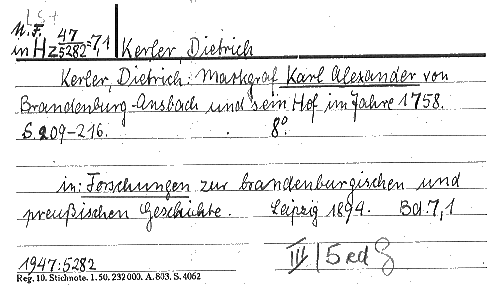 LS+
N.F.
in Hz 47/5282=7,1 Kerler, Dietrich
Kerler, Dietrich: Markgraf Karl Alexander von
Brandenburg-Ansbach und sein Hof im Jahre 1758.
S. 209-216. 8°.
in: Forschungen zur brandenburgischen und
preußischen Geschichte. Leipzig 1894. Bd. 7,1
1947:5282
III | 5 ed
Reg. 10. Stichnote. 1. 50. 232000. A. 803. S. 4062